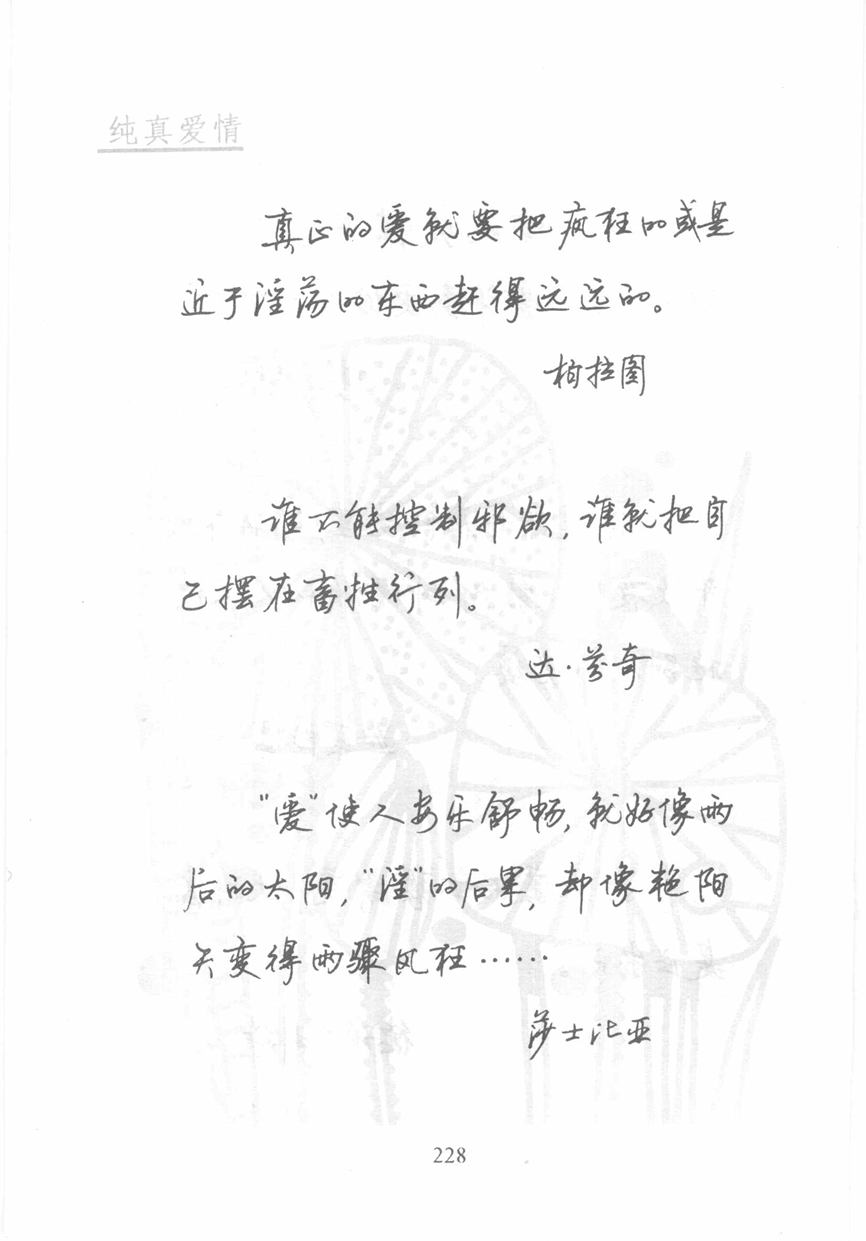 纯真爱情
真正的爱就要把疯狂的或是
近于淫荡的东西赶得远远的。
柏拉图
谁不能控制邪欲，谁就把自
己摆在畜牲行列。
达·芬奇
“爱”使人安乐舒畅，就好像雨
后的太阳，“淫”的后果，却像艳阳
天变得雨骤风狂……
莎士比亚
228